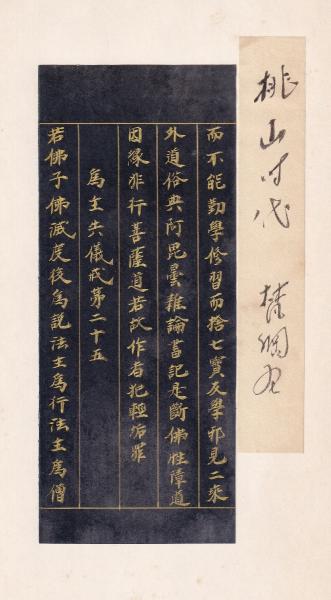 桃山时代
而不能勤學修習而捨七寶反學邪見二乘
外道俗典阿毘曇雜論書記是斷佛性障道
因緣非行菩薩道若故作者犯輕垢罪
為主失儀戒第二十五
若佛子佛滅度後為説法主為行法主為僧